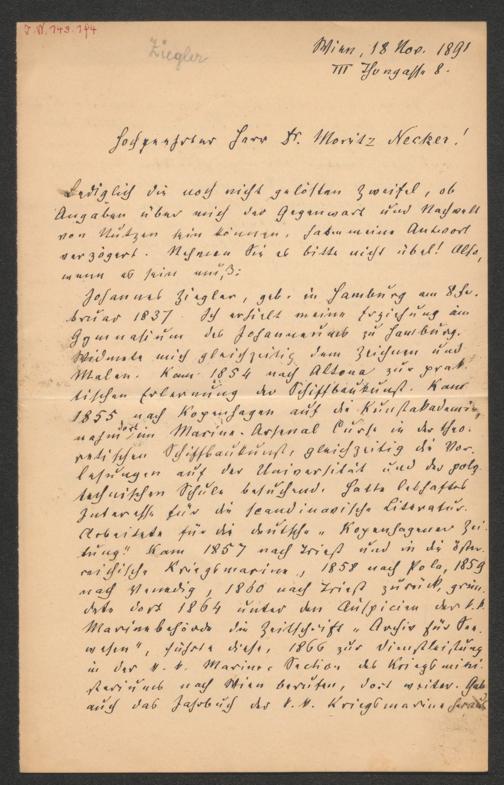 I.N. 143.194
Ziegler
Wien, 18 Nov. 1891
III Thongasse 8.
Hochgeehrter Herr Dr. Moritz Necker!
Lediglich die noch nicht gelösten Zweifel, ob
Angaben über mich der Gegenwart und Nachwelt
von Nutzen sein können, haben meine Antwort
verzögert. Nehmen Sie es bitte nicht übel! Also,
wenn es sein muß:
Johannes Ziegler, geb. in Hamburg am 8. Fe-
bruar 1837. Ich erhielt meine Erziehung im
Gymnasium des Johanneums zu Hamburg.
Widmete mich gleichzeitig dem Zeichnen und
Malen. Kam 1854 nach Altona zur prak-
tischen Erlernung der Schiffbaukunst. Kam
1855 nach Kopenhagen auf die Kunstakademie,
nahm dort im Marine-Arsenal Curse in der theo-
retischen Schiffbaukunst, gleichzeitig die Vor-
lesungen auf der Universität und der poly-
technischen Schule besuchend. Hatte lebhaftes
Interesse für die scandinavische Literatur.
Arbeitete für die deutsche „Kopenhagener Zei-
tung". Kam 1857 nach Triest und in die öster-
reichische Kriegsmarine, 1858 nach Pola, 1859
nach Venedig, 1860 nach Triest zurück, grün-
dete dort 1864 unter den Auspicien der k.k.
Marinebehörde die Zeitschrift „Archiv für See-
wesen", führte diese, 1866 zur Dienstleistung
in der k.k. Marine-Section des Kriegsmini-
steriums nach Wien berufen, dort weiter. Gab
auch das Jahrbuch der k.k. Kriegsmarine heraus